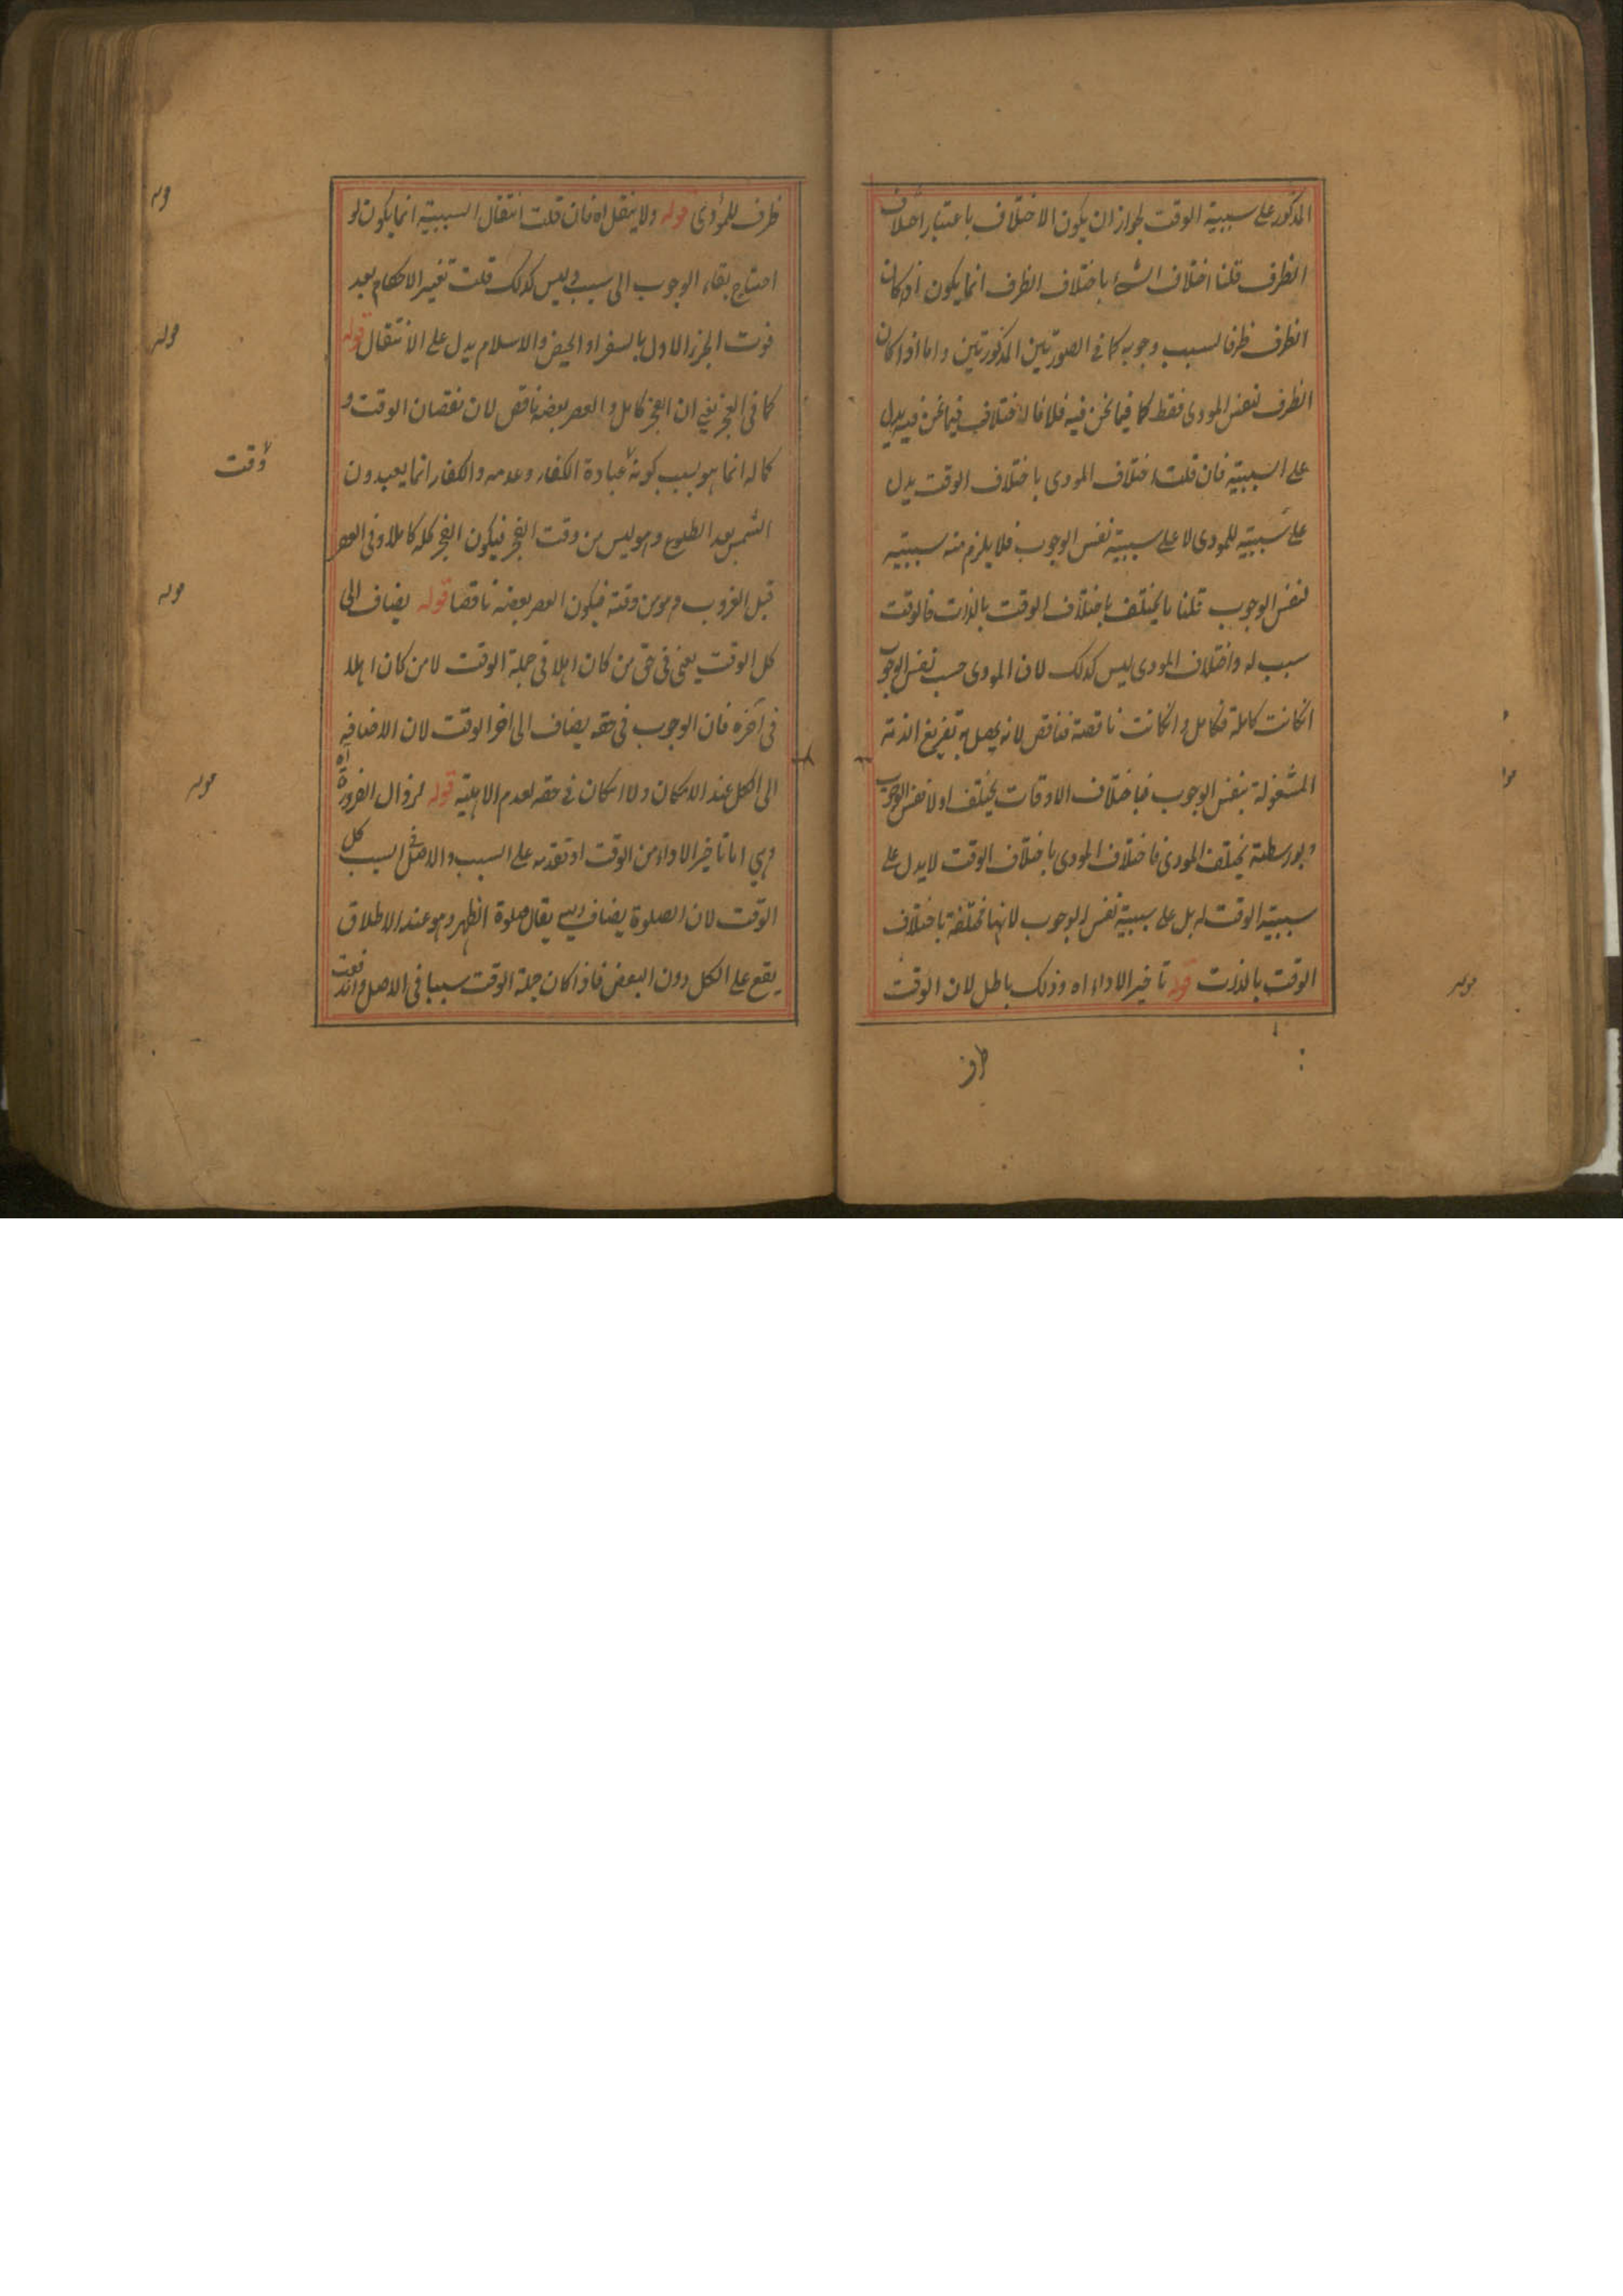 المذكور على سببية الوقت لجواز ان يكون الاختلاف باعتبار اختلاف
الظرف قلنا اختلاف الشئ باختلاف الظرف انما يكون اذا كان
الظرف ظرفا لسبب وجوبه كما في الصورتين المذكورتين واما اذا كان
الظرف لنفس المودى فقط كما فيما نحن فيه فلا فالاختلاف فيما نحن فيه يدل
على السببية فان قلت اختلاف المودى باختلاف الوقت يدل
على سببيته للمودى لا على سببيته نفس الوجوب فلا يلزم منه سببيته
لنفس الوجوب قلنا ما يختلف باختلاف الوقت بالذات فالوقت
سبب له واختلاف المودى ليس كذلك لان المودى حسب نفس الوجوب
انكانت كاملة فكامل وانكانت ناقصة فناقص لانه يحصل به تفريغ الذمة
المشغولة بنفس الوجوب فباختلاف الاوقات يختلف اولا نفس الوجوب
وبواسطته يختلف المودى فاختلاف المودى باختلاف الوقت لا يدل على
سببية الوقت له بل على سببية نفس الوجوب لانها مختلفة باختلاف
الوقت بالذات قوله تاخير الاداء اه وذلك باطل لان الوقت
ظرف
ظرف للمؤدى قوله ولا ينتقل اه فان قلت انتقال السببية انما يكون لو
احتاج بقاء الوجوب الى سبب وليس كذلك قلت تغير الاحكام بعد
فوت الجزء الاول بالسفر او الحيض والاسلام يدل على الانتقال قوله
كما في الفجر يعني ان الفجر كامل و العصر بعضه ناقص لان نقصان الوقت و
كماله انما هو بسبب كونه عبادة الكفار وعدمه والكفار انما يعبدون
وقت
الشمس بعد الطلوع وهو ليس من وقت الفجر فيكون الفجر كله كاملا وفي العصر
قبل الغروب وهو من وقته فيكون العصر بعضه ناقصا قوله يضاف الى
كل الوقت يعني في حق من كان اهلا في جملة الوقت لا من كان اهلا
في آخره فان الوجوب في حقه يضاف الى اخر الوقت لان الاضافة
الى الكل عند الامكان ولا امكان في حقه لعدم الاهلية قوله لزوال الضرورة اه
وهي اما تاخير الاداء من الوقت او تقدمه على السبب والاصل في السبب كل
الوقت لان الصلوة يضاف اليه يقال صلوة الظهر وهو عند الاطلاق
يقع على الكل دون البعض فاذا كان جملة الوقت سببا في الاصل واندفعت
قوله
قوله
قوله
قوله
قوله